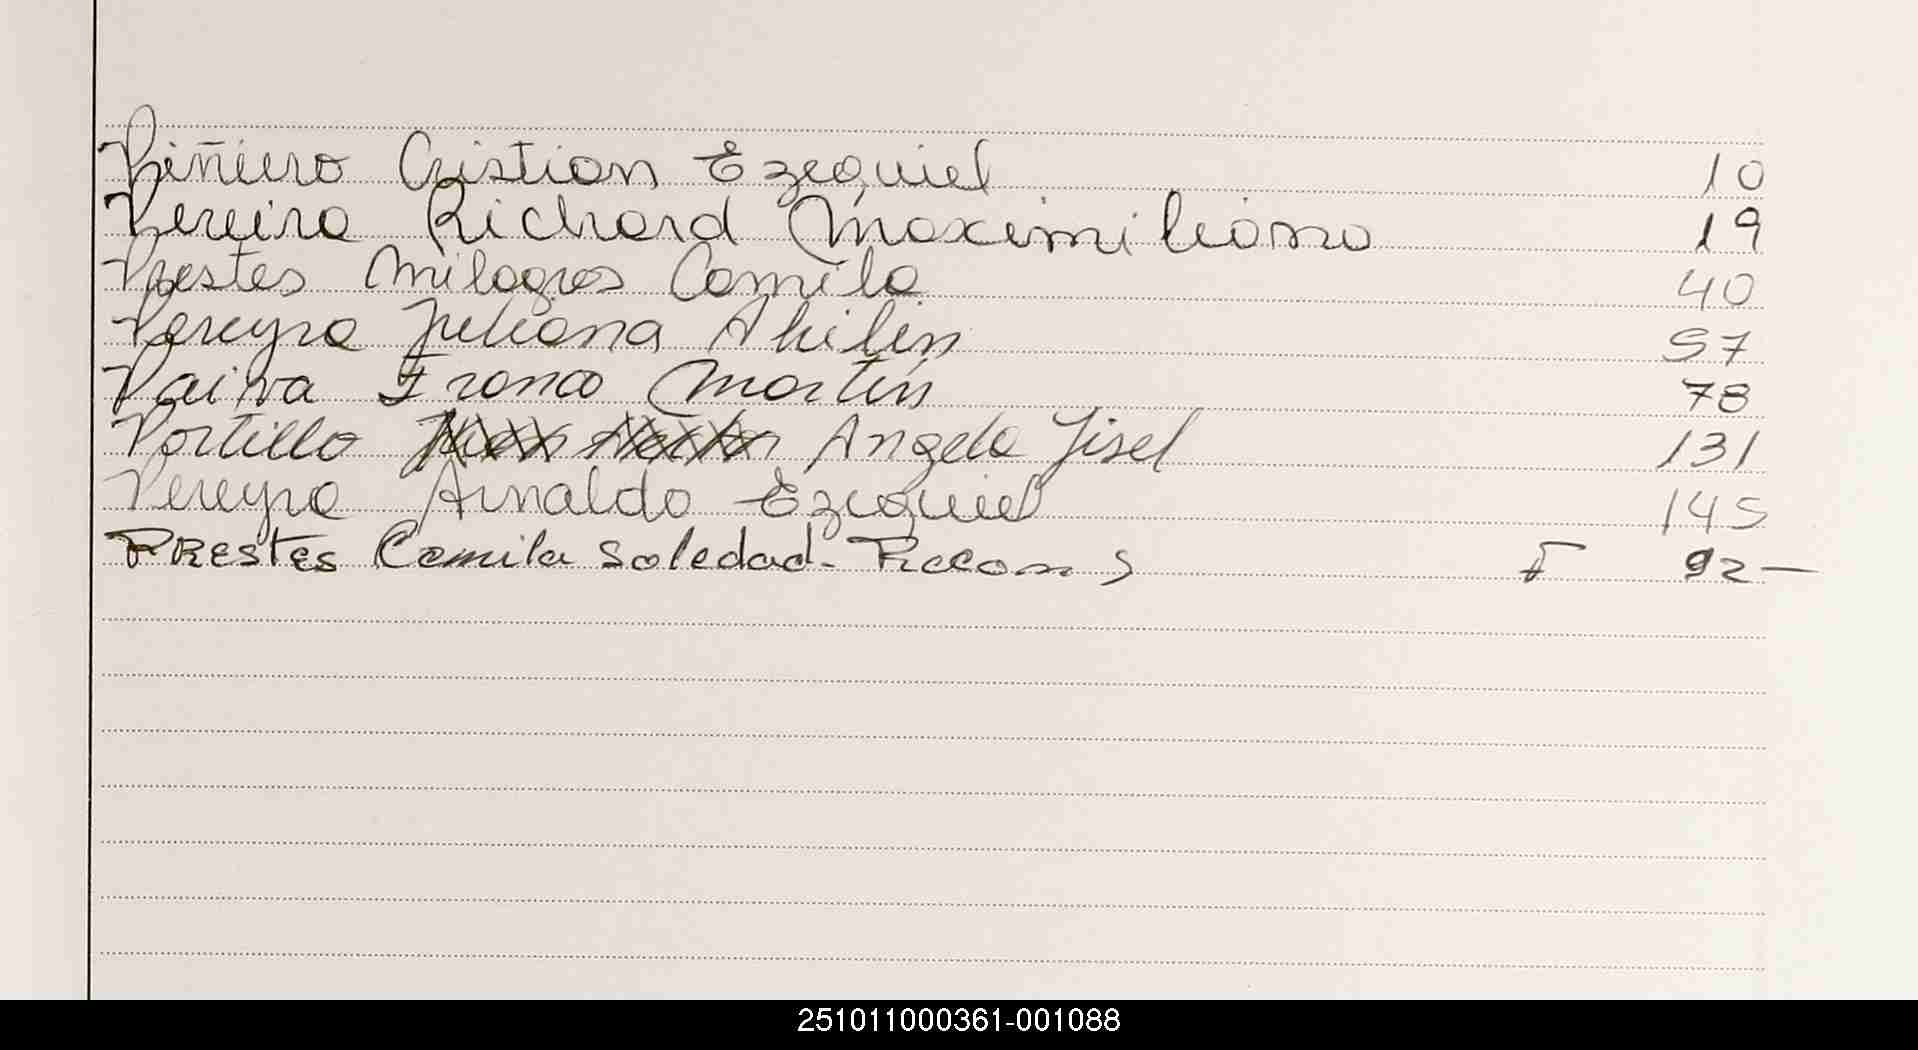 Piñiero Cristian Ezequiel 10
Pereira Richard Maximiliano 19
Prestes Milagros Camila 40
Pereyra Juliana Ahilin 57
Paiva Franco Martin 78
Portillo Angela Jisel 131
Pereyra Arnaldo Ezequiel 145
PREStES Camila Soledad. F 92 —
251011000361-001088